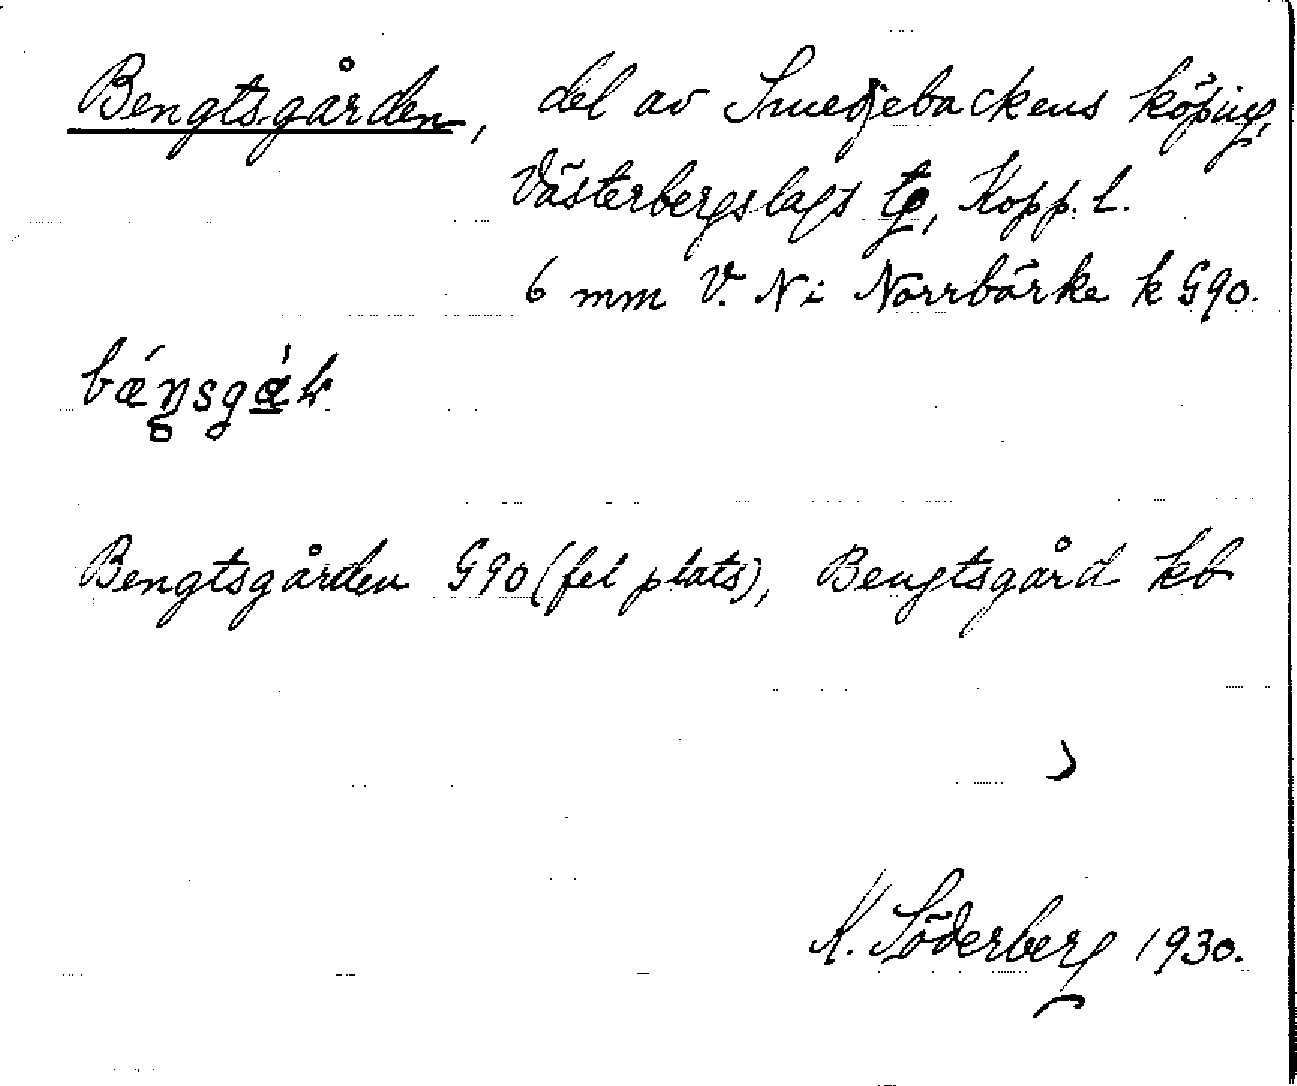 Bengtsgården, del av Smedjebackens köping,
Västerbergslags tg, Kopp. l.
6 mm V. N i Norrbärke k G90.
Bengtsgården G90 (fel plats), Bengtsgård kb
K. Söderberg 1930.